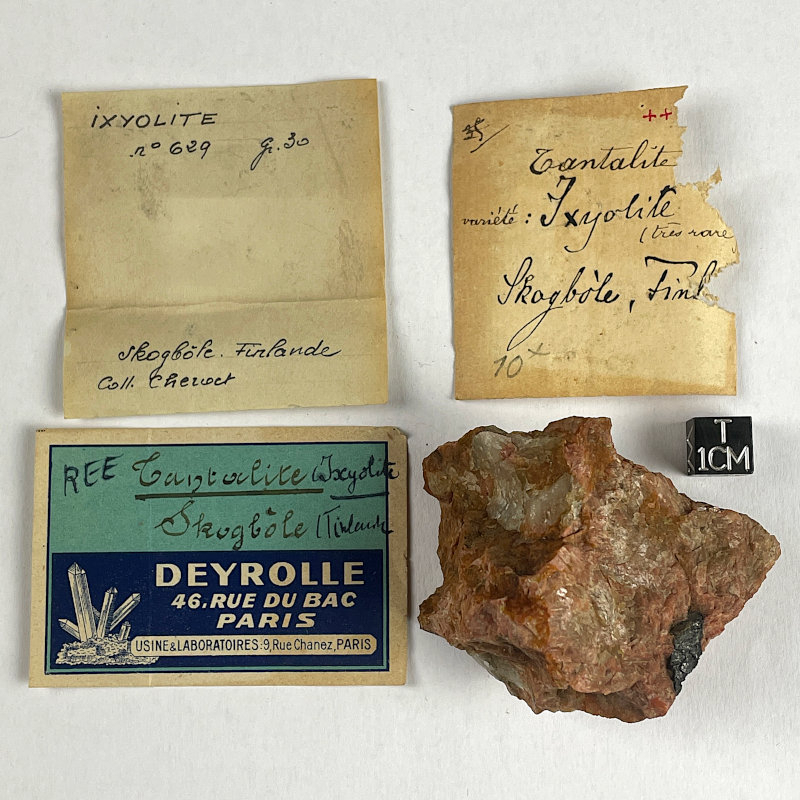 iXYOLITE
nº 629 Gr. 30
Skogböle. Finlande
Coll. Chervet
++
35/
Tantalite
variété: Ixyolite
(très rare
Skogbòle, Finl
10x
REE Tantalite (Ixyolite
Skogbôle (Finlande
DEYROLLE
46, RUE DU BAC
PARIS
USINE & LABORATOIRES: 9, Rue Chanez, PARIS
T
1CM